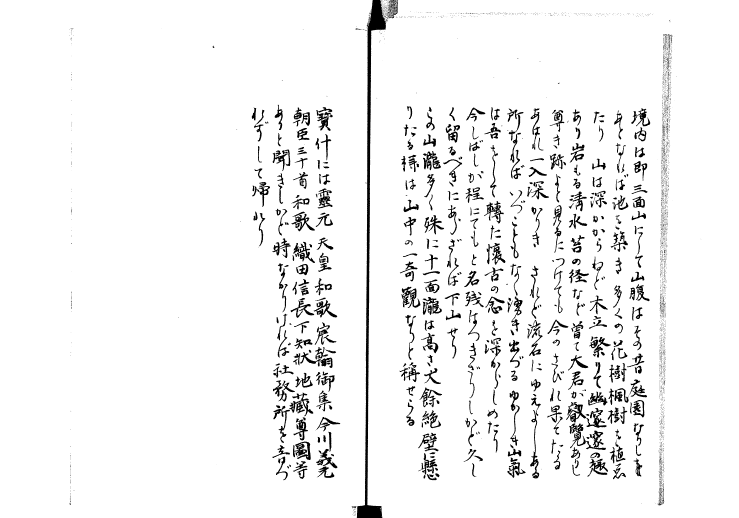 境内は即三面山にして山腹はその昔庭園なりしを
あとなれば池を築き多くの花樹楓樹を植ゑ
たり　山は深からねど木立繁りて幽邃の趣
あり岩もる清水苔の径など曽て大君が叡覧ありし
尊き跡よと見るにつけても今のさびれ果てたる
あはれ一入深かりき　されど流石にゆえよしある
所なればいづこともなく湧き出づるゆかしき山氣
は吾をして轉た懐古の念を深からしめたり
今しばしが程にてもと名残はつきざりしかど久し
く留るべきにあらざれば下山せり
この山瀧多く殊に十一面瀧は高さ丈餘絶壁に懸
りたる様は山中の一奇觀なりと稱せらる
寶什には靈元天皇和歌宸翰御集今川義元
朝臣三十首和歌織田信長下知狀地藏尊圖等
ありと聞きしかど時なかりければ社務所を
れずして帰れり